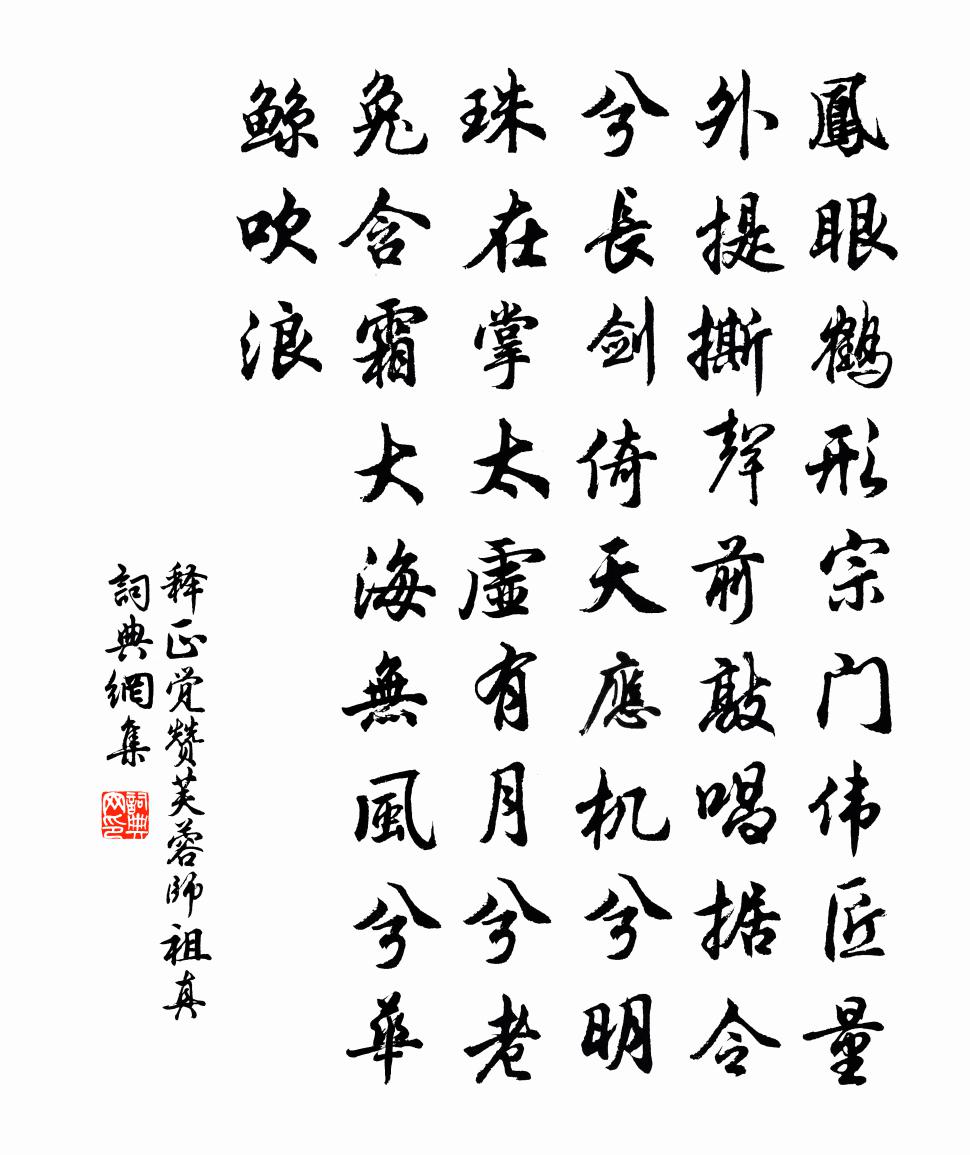 鳳眼鶴形宗门伟匠量
外提撕聲前敲唱据令
兮長剑倚天應机兮明
珠在掌太虛有月兮老
兔含霜大海無風兮華
鲸吹浪
释正觉赞芙蓉師祖真
詞典網集
詞典网印